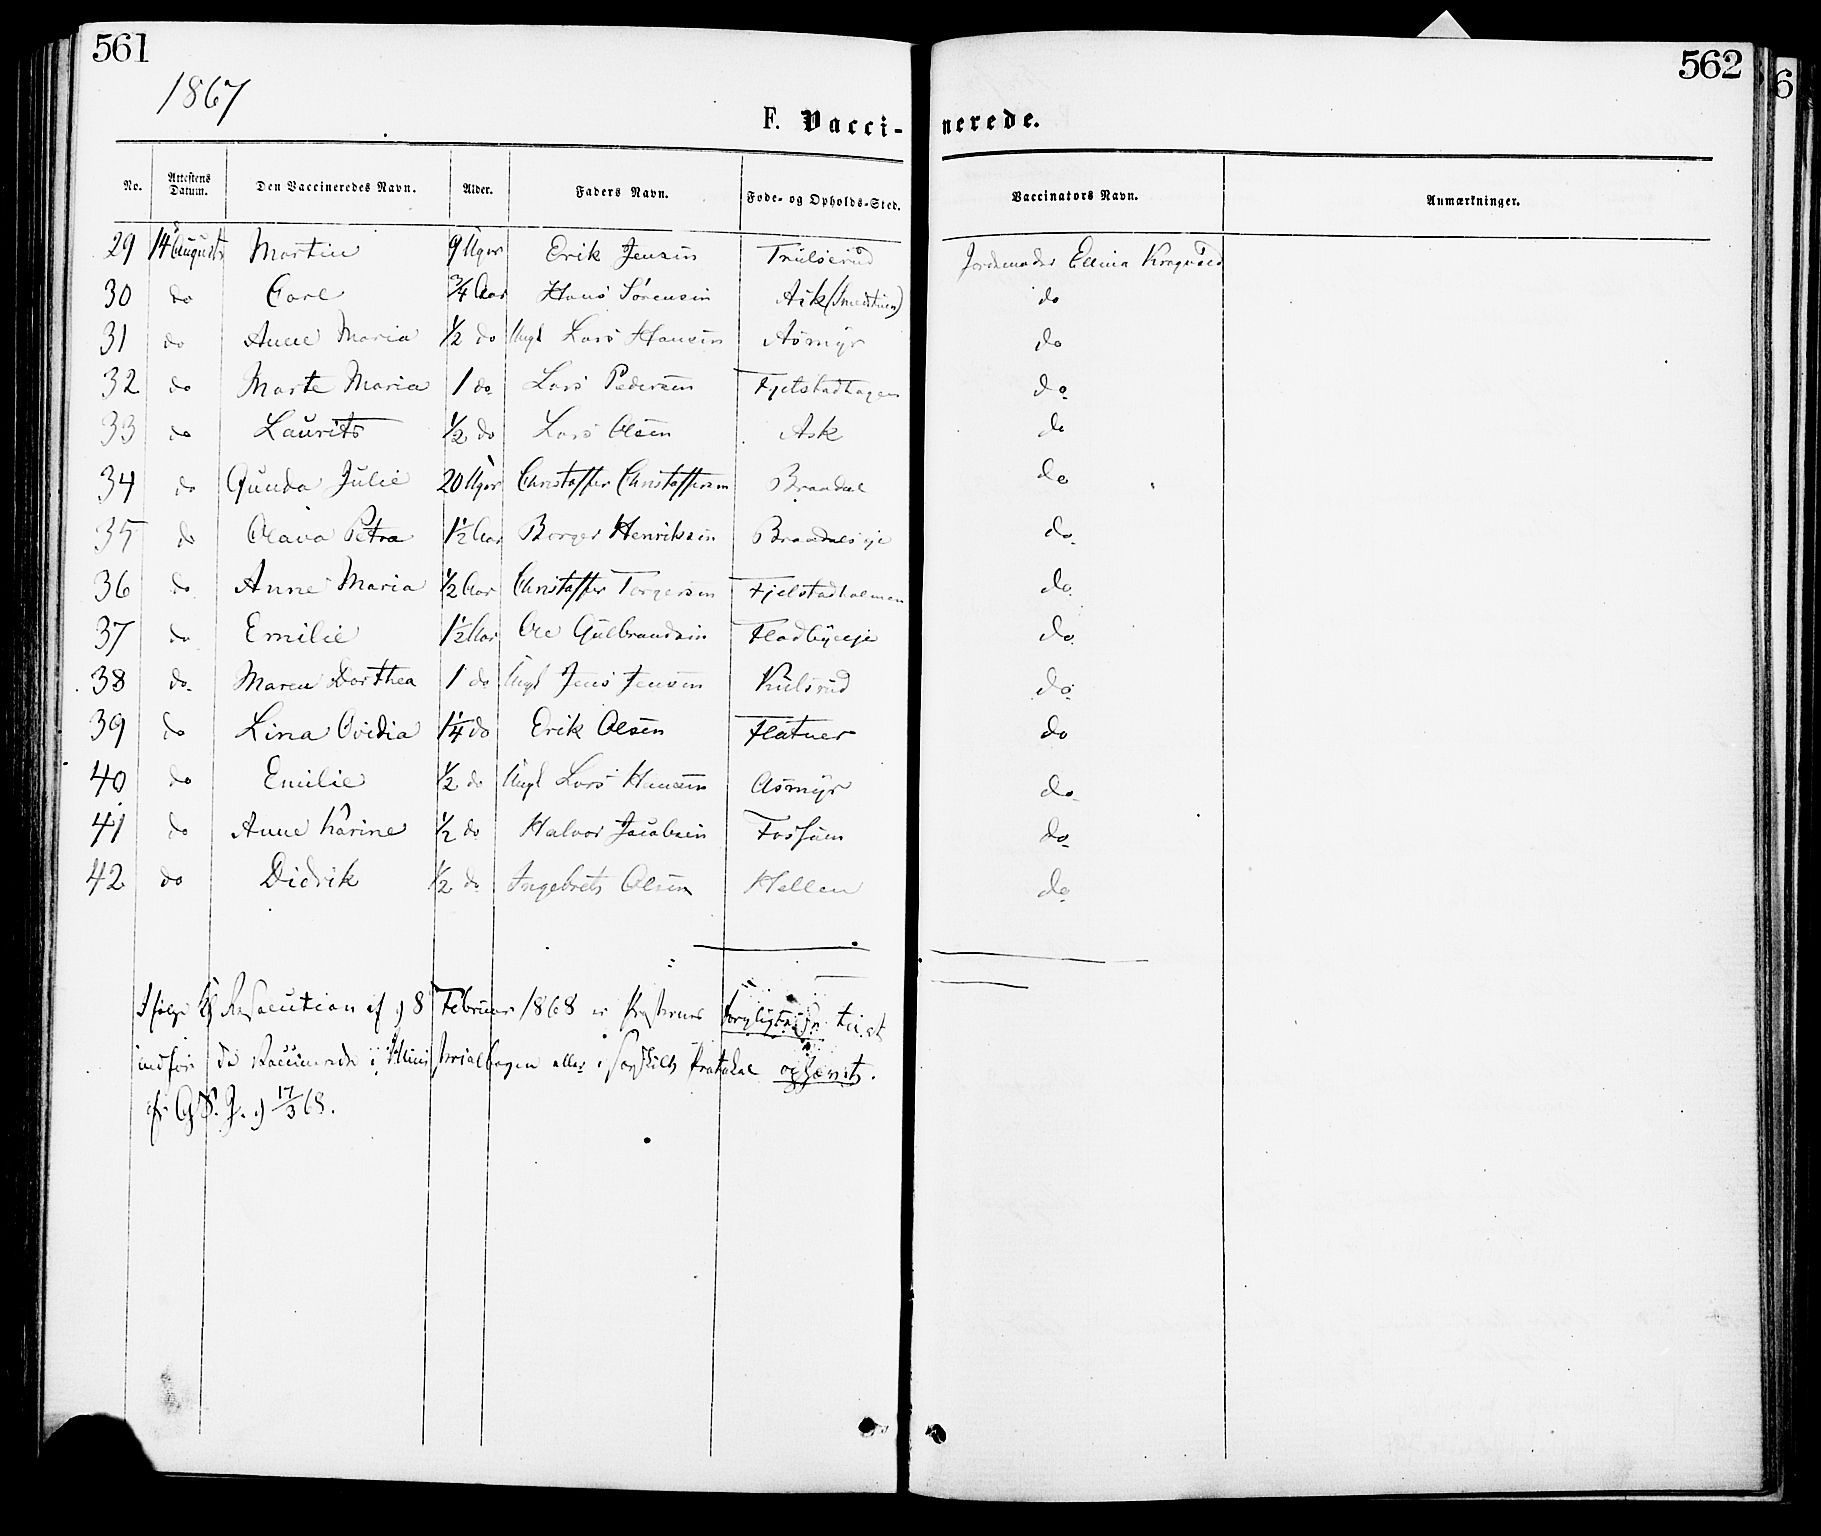 561
562
6
1867
F. Vacci- nerede.
No. Attestens Datum. Den Vaccineredes Navn. Alder. Faders Navn. Føde- og Opholds-Sted. Vaccinators Navn. Anmærkninger.
29 14 August Martin 9 Uger Erik Jensen Trulserud Jordemoder
30 do Carl 3/4 Aar Hans Sørensen Ask do
31 do Anne Maria 1/2 do Ungk Lars Hansen Asmyr do
32 do Marte Maria 1 do Lars Pedersen Fjelstadhagen do
33 do Laurits 1/2 do Lars Olsen Ask do
34 do Gunda Julie 20 Uger Christoffer Christoffersen Braadal do
35 do Olava Petra 1 1/2 Aar Borger Henriksen do
36 do Anne Maria 1/2 Aar Christoffer Torgersen Fjelstadholmen do
37 do Emilie 1 1/2 Aar Ole Gulbrandsen Fladbyeje do
38 do Maren Dorthea 1 do Ungk Jens Jensen Kulsrud do
39 do Lina Ovidia 1 1/4 do Erik Olsen Flatner do
40 do Emilie 1/2 do Ungk Lars Hansen Asmyr do
41 do Anne Karine 1/2 do Halvor Jacobsen Fossum do
42 do Didrik 1/2 do Ingebret Olsen Hellen do
Ifølge Kgl Resolution af 8 Februar 1868 er Præsternes til at
indføre de Vaccinerede i Ministerialbogen eller i Protokol ophævet.
17/3 68.